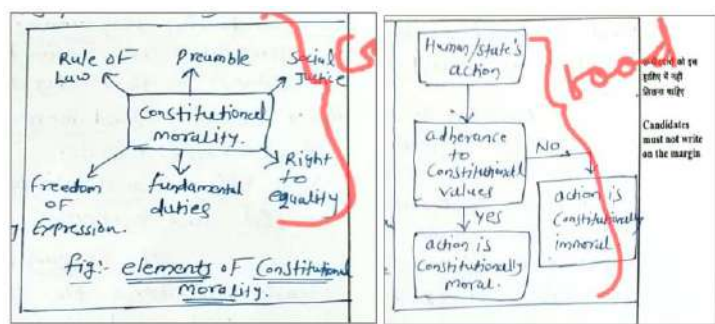 Rule of Law
Preumble
Social Justice
Constitutional morality.
Freedom of Expression.
fundamental duties
Right to equality
fig:- elements of Constitutional morality.
Human/state's action
Good
adherance to Constitutional values
NO
Yes
action is Constitutionally moral.
action is Constitutionally immoral
लिखना चाहिए
Candidates
must not write
on the margin